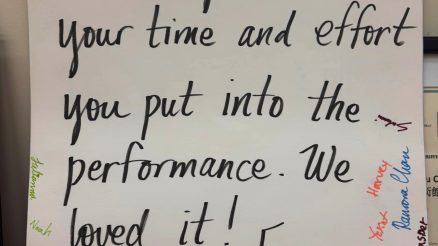 your time and effort
you put into the
performance. We
loved it!
Noah
Harvey
Ramona Chan